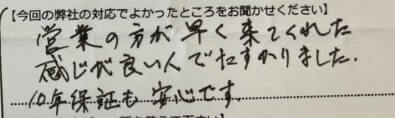 【今回の弊社の対応でよかったところをお聞かせください】
営業の方が早く来てくれた
感じが良い人でたすかりました.
10年保証も安心です.